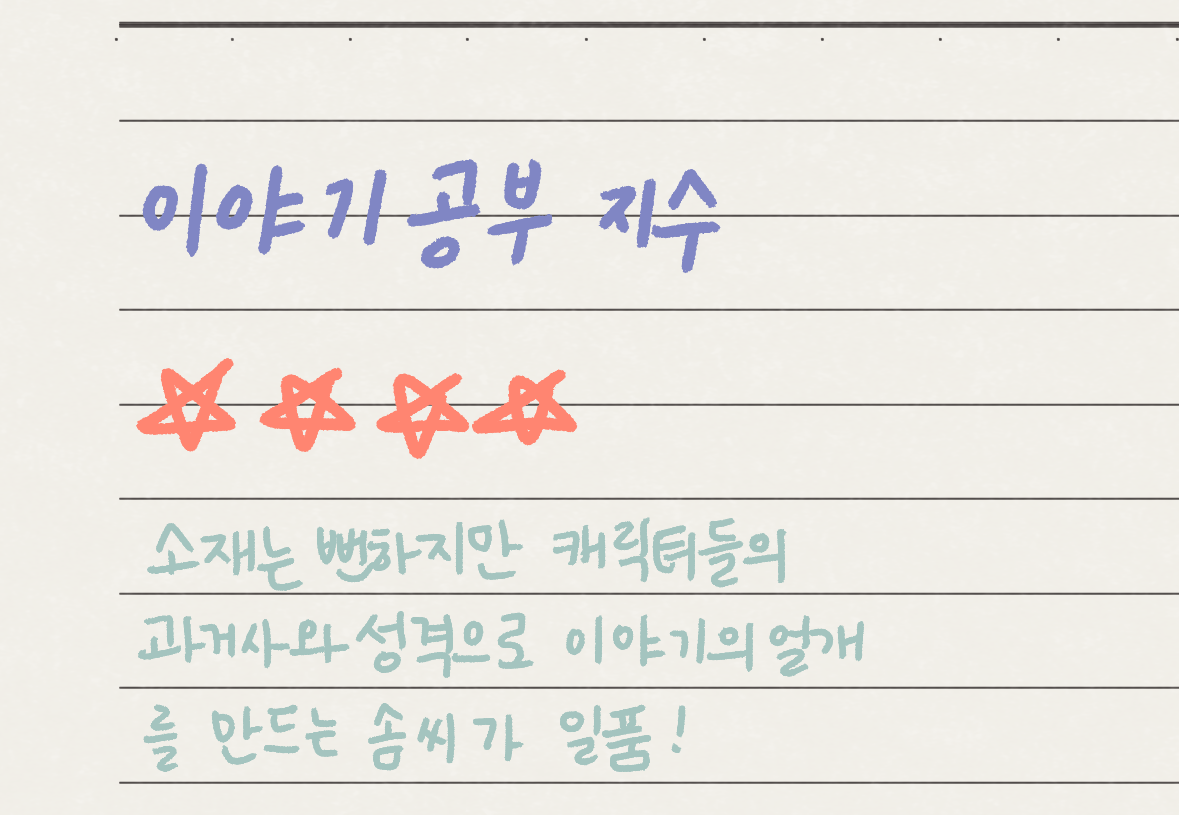 이야기 공부 지수
소재는 뻔하지만 캐릭터들의
과거사와 성격으로 이야기의 얼개
를 만드는 솜씨가 일품!